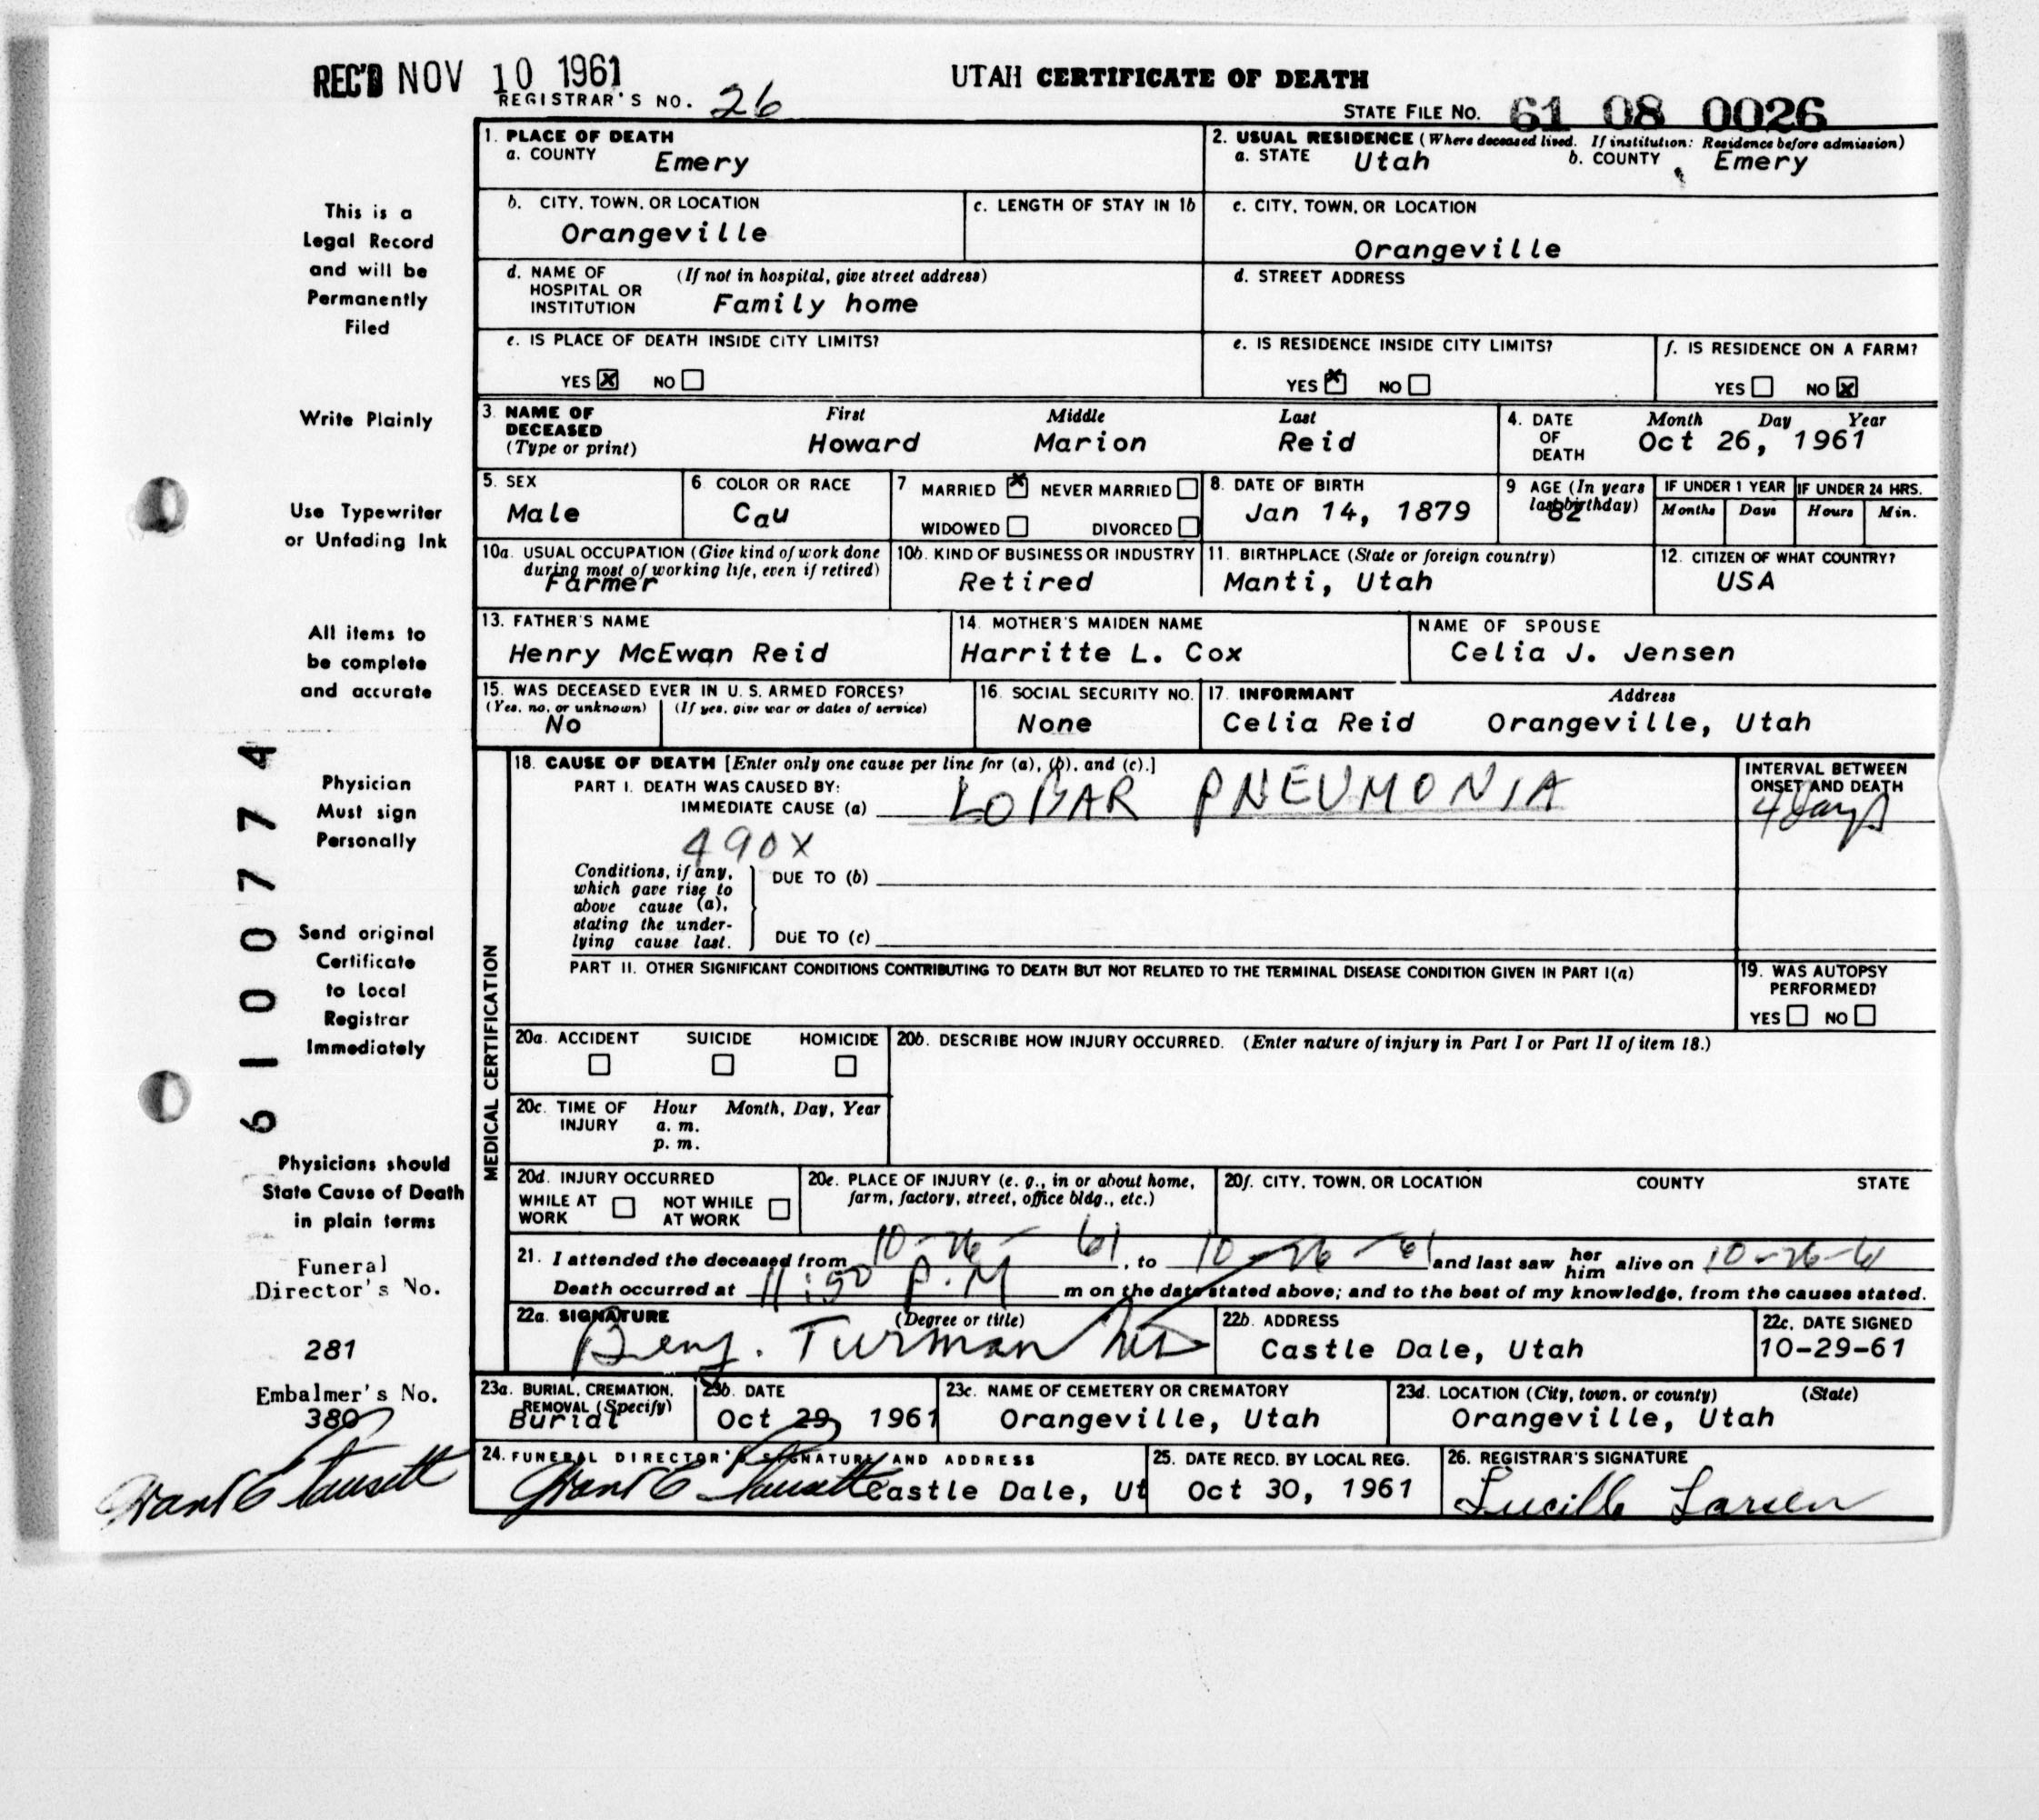 REC'D NOV 10 1961
UTAH CERTIFICATE OF DEATH
REGISTRAR'S NO. 26
STATE FILE NO. 61 08 0026
1. PLACE OF DEATH
a. COUNTY Emery
2. USUAL RESIDENCE (Where deceased lived. If institution: Residence before admission)
a. STATE Utah b. COUNTY Emery
b. CITY, TOWN, OR LOCATION
Orangeville
c. LENGTH OF STAY IN 1b
c. CITY, TOWN, OR LOCATION
Orangeville
d. NAME OF HOSPITAL OR INSTITUTION (If not in hospital, give street address)
Family home
d. STREET ADDRESS
e. IS PLACE OF DEATH INSIDE CITY LIMITS?
YES X NO
e. IS RESIDENCE INSIDE CITY LIMITS?
YES X NO
f. IS RESIDENCE ON A FARM?
YES NO X
3. NAME OF DECEASED (Type or print)
First Middle Last
Howard Marion Reid
4. DATE OF DEATH
Month Day Year
Oct 26, 1961
5. SEX
Male
6. COLOR OR RACE
Cau
7 MARRIED X NEVER MARRIED
WIDOWED DIVORCED
8. DATE OF BIRTH
Jan 14, 1879
9 AGE (In years last birthday)
82
IF UNDER 1 YEAR
Months Days
IF UNDER 24 HRS.
Hours Min.
10a. USUAL OCCUPATION (Give kind of work done
during most of working life, even if retired)
Farmer
10b. KIND OF BUSINESS OR INDUSTRY
Retired
11. BIRTHPLACE (State or foreign country)
Manti, Utah
12. CITIZEN OF WHAT COUNTRY?
USA
13. FATHER'S NAME
Henry McEwan Reid
14. MOTHER'S MAIDEN NAME
Harritte L. Cox
NAME OF SPOUSE
Celia J. Jensen
15. WAS DECEASED EVER IN U. S. ARMED FORCES?
(Yes, no, or unknown) (If yes, give war or dates of service)
No
16. SOCIAL SECURITY NO.
None
17. INFORMANT Address
Celia Reid Orangeville, Utah
MEDICAL CERTIFICATION
18. CAUSE OF DEATH [Enter only one cause per line for (a), (b), and (c).]
PART I. DEATH WAS CAUSED BY:
IMMEDIATE CAUSE (a) LOBAR PNEUMONIA
INTERVAL BETWEEN
ONSET AND DEATH
4 days
490X
Conditions, if any,
which gave rise to
above cause (a),
stating the under-
lying cause last.
DUE TO (b)
DUE TO (c)
PART II. OTHER SIGNIFICANT CONDITIONS CONTRIBUTING TO DEATH BUT NOT RELATED TO THE TERMINAL DISEASE CONDITION GIVEN IN PART I(a)
19. WAS AUTOPSY
PERFORMED?
YES NO
20a. ACCIDENT SUICIDE HOMICIDE
20b. DESCRIBE HOW INJURY OCCURRED. (Enter nature of injury in Part I or Part II of item 18.)
20c. TIME OF INJURY Hour Month, Day, Year
a. m.
p. m.
20d. INJURY OCCURRED
WHILE AT WORK NOT WHILE AT WORK
20e. PLACE OF INJURY (e. g., in or about home,
farm, factory, street, office bldg., etc.)
20f. CITY, TOWN, OR LOCATION COUNTY STATE
21. I attended the deceased from 10-26-61, to 10-26-61 and last saw her him alive on 10-26-61
Death occurred at 11:50 P.M m on the date stated above; and to the best of my knowledge, from the causes stated.
22a. SIGNATURE (Degree or title)
Benj. Turman MD
22b. ADDRESS
Castle Dale, Utah
22c. DATE SIGNED
10-29-61
23a. BURIAL, CREMATION,
REMOVAL (Specify)
Burial
23b. DATE
Oct 29, 1961
23c. NAME OF CEMETERY OR CREMATORY
Orangeville, Utah
23d. LOCATION (City, town, or county) (State)
Orangeville, Utah
24. FUNERAL DIRECTOR'S SIGNATURE AND ADDRESS
Grant C Fausett Castle Dale, Ut
25. DATE RECD. BY LOCAL REG.
Oct 30, 1961
26. REGISTRAR'S SIGNATURE
Lucille Larsen
This is a
Legal Record
and will be
Permanently
Filed
Write Plainly
Use Typewriter
or Unfading Ink
All items to
be complete
and accurate
Physician
Must sign
Personally
Send original
Certificate
to Local
Registrar
Immediately
Physicians should
State Cause of Death
in plain terms
Funeral
Director's No.
281
Embalmer's No.
380
Grant C Fausett
6100774